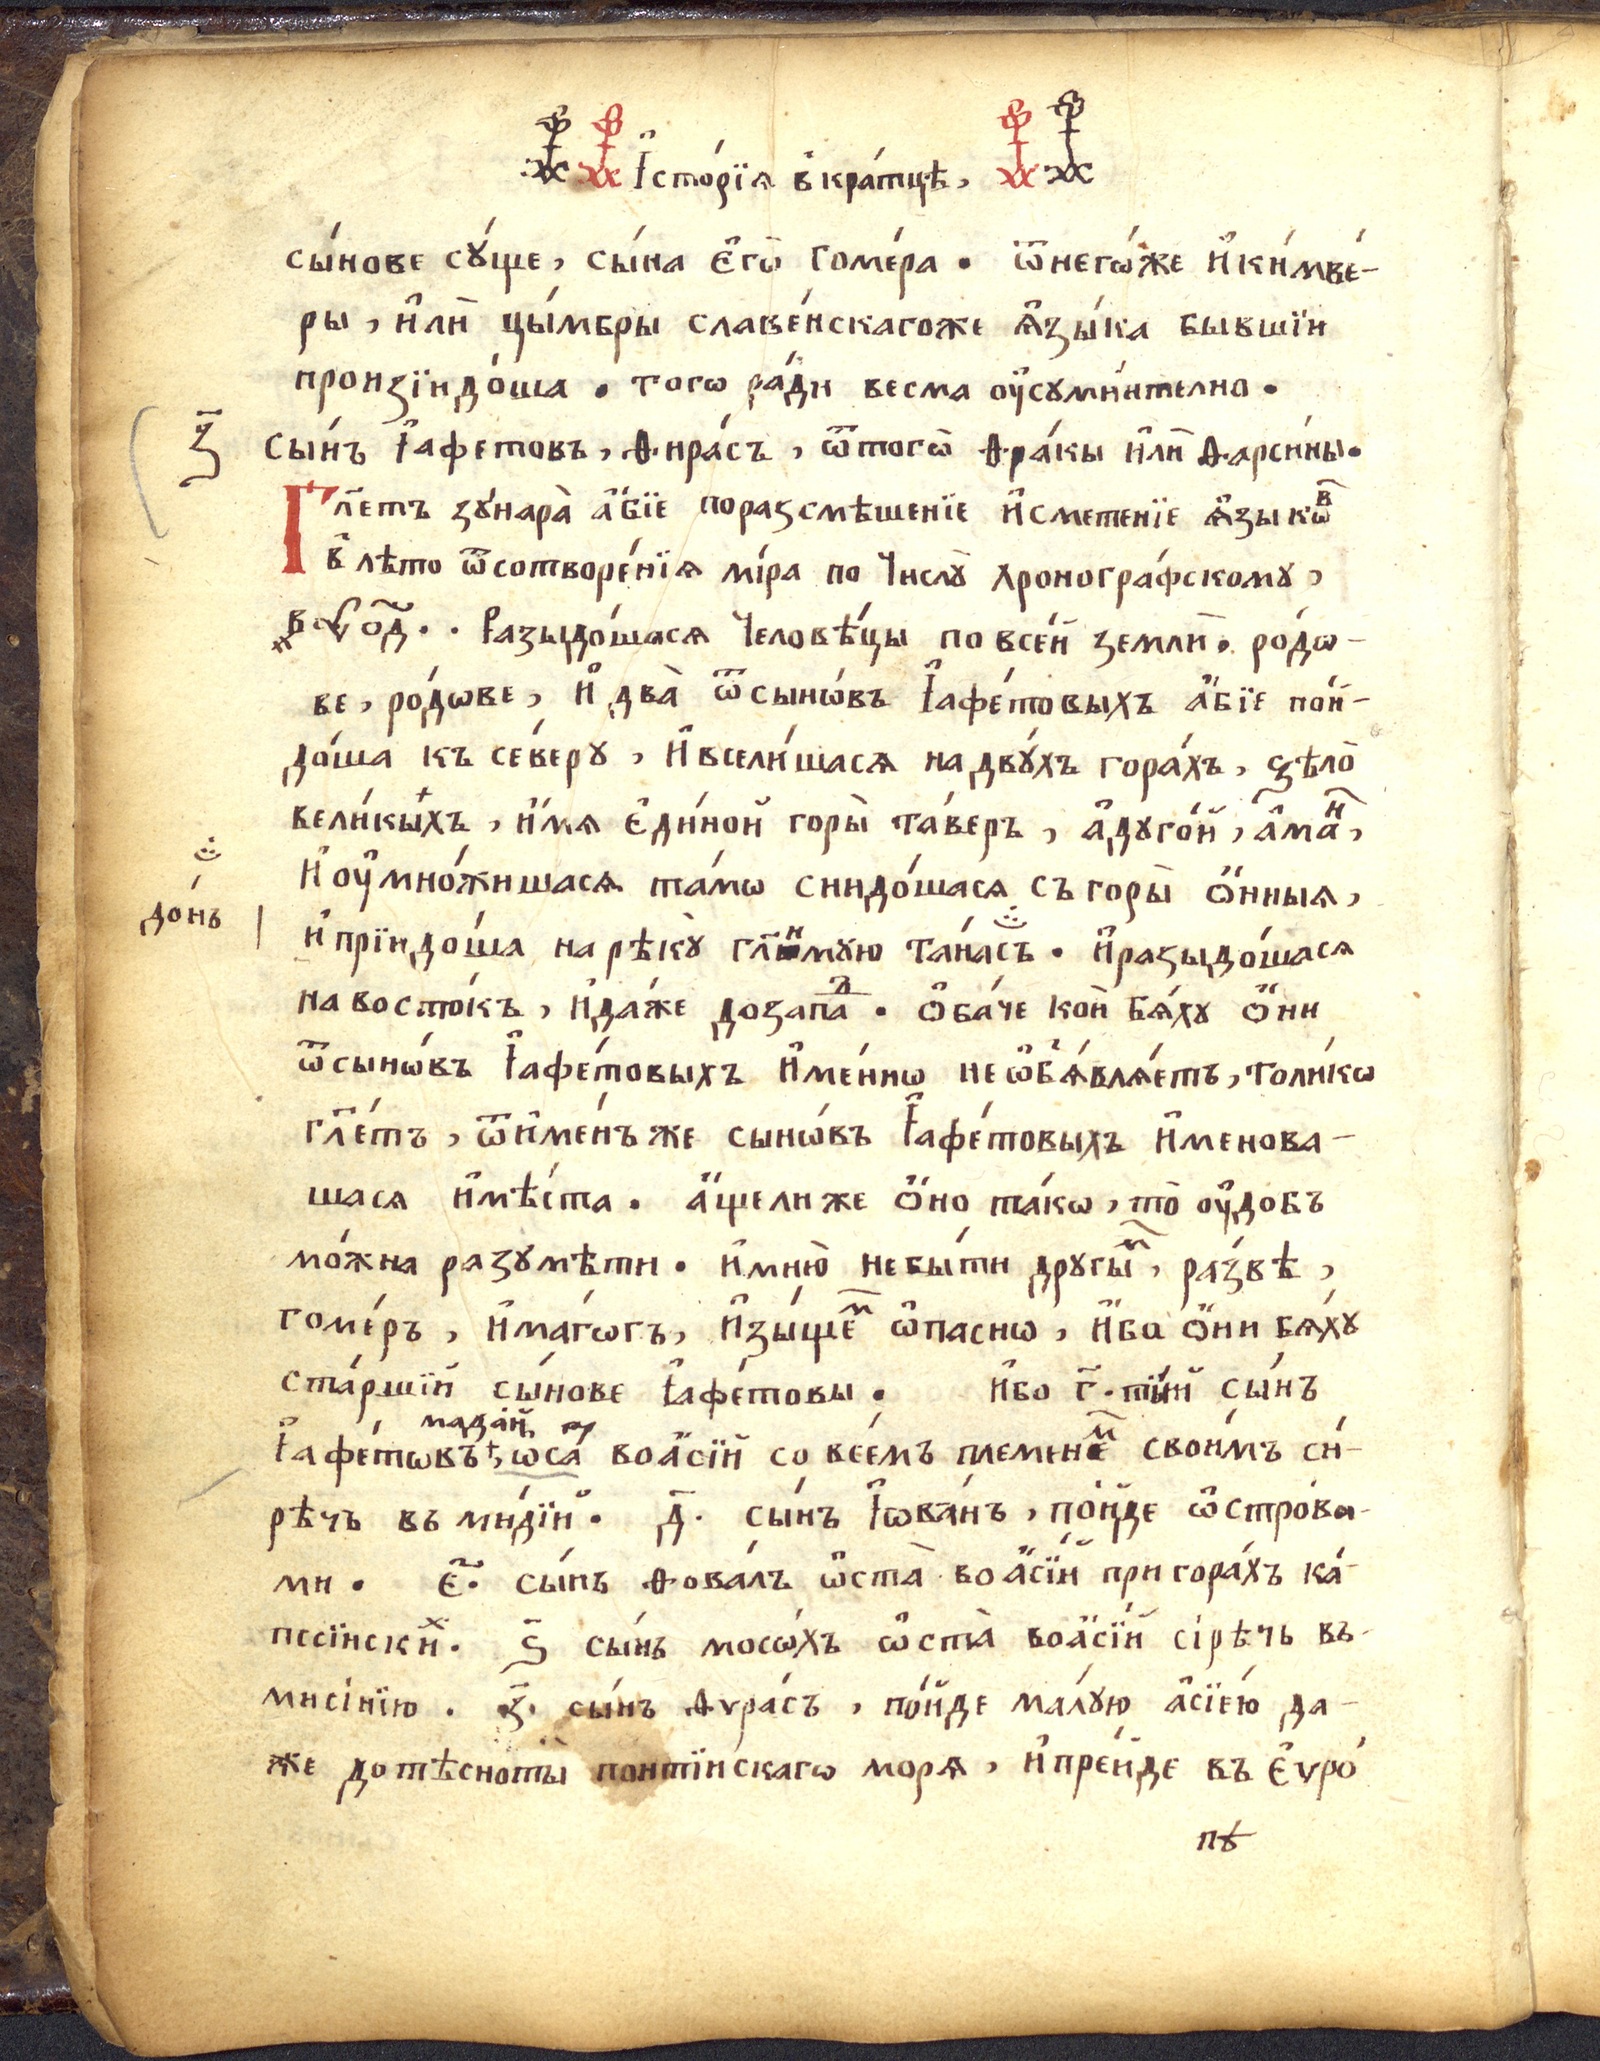 І҆сто́рїѧ в҆кра́тцѣ,
сы́нове сꙋ́ще, сы́на є҆гѡ̀ гоме́ра. ѿнегѡ́же и҆ки́мве́-
ры, и҆лѝ цы́мбры славе́нскагоже ꙗ҆зы́ка бывшїи
произїидо́ша. тогѡ ра́ди весма ᲂу҆сꙋмни́телно.
з҃ сы́нъ І҆афетовъ, Ѳира́съ, ѿтогѡ̀ Ѳра́кы и҆лѝ Ѳарси́ны.
Гл҃етъ зꙋнара̀ а҆́бїе поразсмѣшенїе и҆сметенїе ꙗ҆зыкѡⷡ҇
в҆лѣто ѿсотворе́нїѧ мі́ра по числꙋ̀ хроногра́фскомꙋ,
Разыдо́шасѧ человѣ́цы по все́й землѝ. ро́дѡ-
ве, ро́дѡве, и҆ два̀ ѿсынѡ́въ І҆афе́товыхъ а҆́бїе пои́-
до́ша къ се́верꙋ, и҆всели́шасѧ на двꙋ́хъ гора́хъ, ѕѣлѡ̀
вели́кыхъ, и҆́мѧ є҆ди́ной горы̀ та́веръ, а҆дꙋго́й, а҆маⷩ҇,
и҆ᲂу҆мно́жишасѧ та́мѡ снидо́шасѧ съ горы̀ ѻ҆́нныѧ,
до́нъ
и҆прїидо́ша на рѣкꙋ̀ гл҃имꙋю Та́насъ. и҆разыдо́шасѧ
на восто́къ, и҆да́же дозапаⷣ. ѻ҆ба́че кои̑ бѧ́хꙋ ѻ҆́ни
ѿсынѡ́въ І҆афе́товыхъ и҆ме́ннѡ не ѡ҆б̾ѧвлѧ́етъ, толи́кѡ
гл҃е́тъ, ѿи҆ме́нъ же сынѡ́въ І҆афе́товыхъ и҆менова-
шасѧ и҆мѣ́ста. а҆́щели же ѻ҆́но та́кѡ, то̀ ᲂу҆добъ
мо́жна разꙋмѣ́ти. и҆мню̀ небы́ти дрꙋгыⷨ, ра́звѣ,
гоме́ръ, и҆маго́гъ, и҆зы́щеⷨ ѡ҆паснѡ, и҆́бо ѻ҆́ни бѧ́хꙋ
ста́ршїи сы́нове І҆афе́товы. и҆́бо г҃.тїй сы́нъ
мада́й,
І҆афе́товъ, ѡса воа҆сі́и со все́мъ племенеⷨ свои́мъ си́-
рѣчь въ ми́дїи. д҃. сы́нъ І҆ѡва́нъ, по́йде ѡ҆стро́ва-
ми. є҃. сы́нъ Ѳова́лъ ѡ҆ста̀ воа҆сі́и при гора́хъ ка́-
псїнскиⷯ. ѕ҃ сы́нъ мосо́хъ ѡ҆ста̀ воа҆сі́и сі́рѣчь въ-
миси́нїю. з҃. сы́нъ Ѳѵра́съ, по́йде ма́лꙋю а҆сїе́ю да-
же до тѣсноты̀ понтїискагѡ морѧ, и҆пре́йде въ є҆ѵро́
пѣ